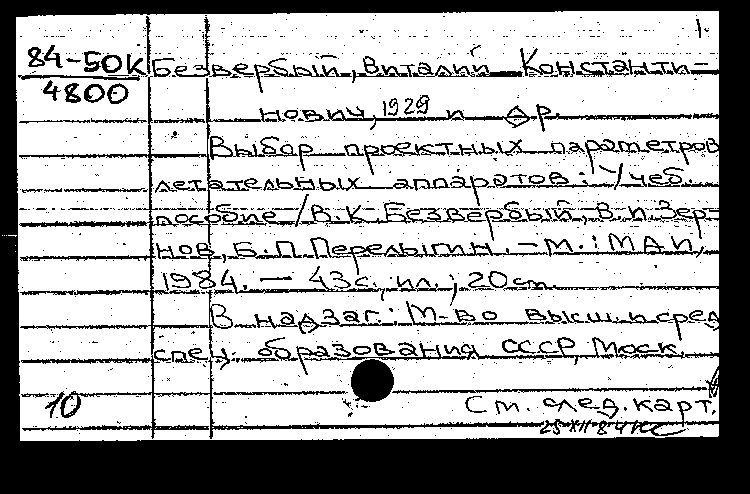 1.
84-50К Безвербый, Виталий Константи-
4800
нович, 1929 и др.
Выбор проектных параметров
летательных аппаратов: Учеб.
пособие / В. К. Безвербый, В. П. Зер-
нов, Б. П. Перелыгин. - М.: МАИ,
1984. — 43 с., ил.; 20 см.
В надзаг.: М-во высш. и сред.
спец. образования СССР, Моск.
10
См. след. карт.
25 XII 84